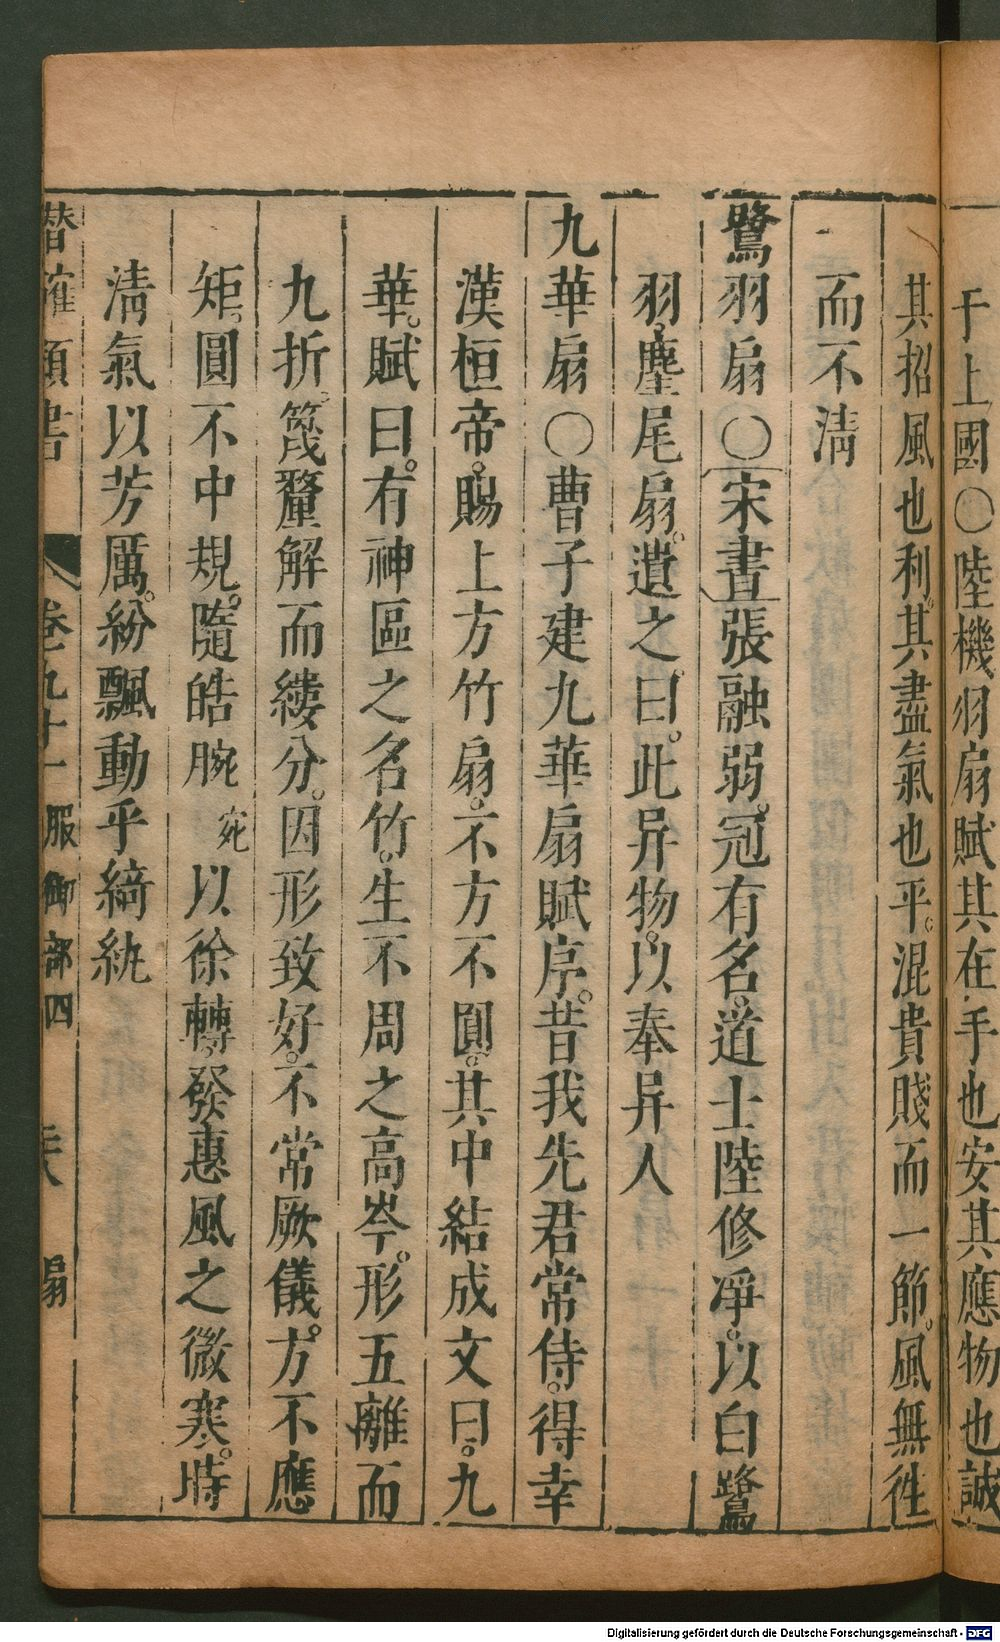 于上國○陸機羽扇賦其在手也安其應物也誠
其招風也利。其盡氣也平。混貴賤而一節。風無徃
而不淸
鷺羽扇○宋書張融弱冠有名。道士陸修凈。以白鷺
羽麈尾扇。遺之。曰。此异物。以奉异人
九華扇○曹子建九華扇賦序。昔我先君常侍。得幸
漢桓帝。賜上方竹扇。不方不圓。其中結成文。曰。九
華。賦曰。有神區之名竹。生不周之高岑。形五離而
九折。篾氂解而縷分。因形致好。不常厥儀。方不應
矩。圓不中規。隨皓腕宛以徐轉。發惠風之微寒。時
淸氣以芳厲。紛飄動乎綺紈
潛確類書 卷九十一 服御部四 扇
Digitalisierung gefördert durch die Deutsche Forschungsgemeinschaft - DFG